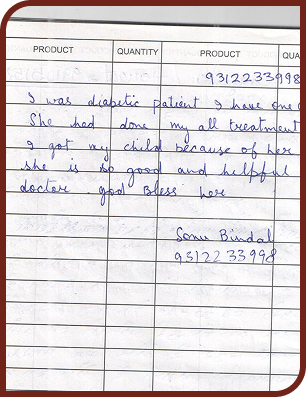 PRODUCT QUANTITY PRODUCT QUA
9312233998
I was diabetic patient I have one
She had done my all treatment
I got my child because of her
she is so good and helpful
doctor. god Bless here
Sonu Bindal
9312233998